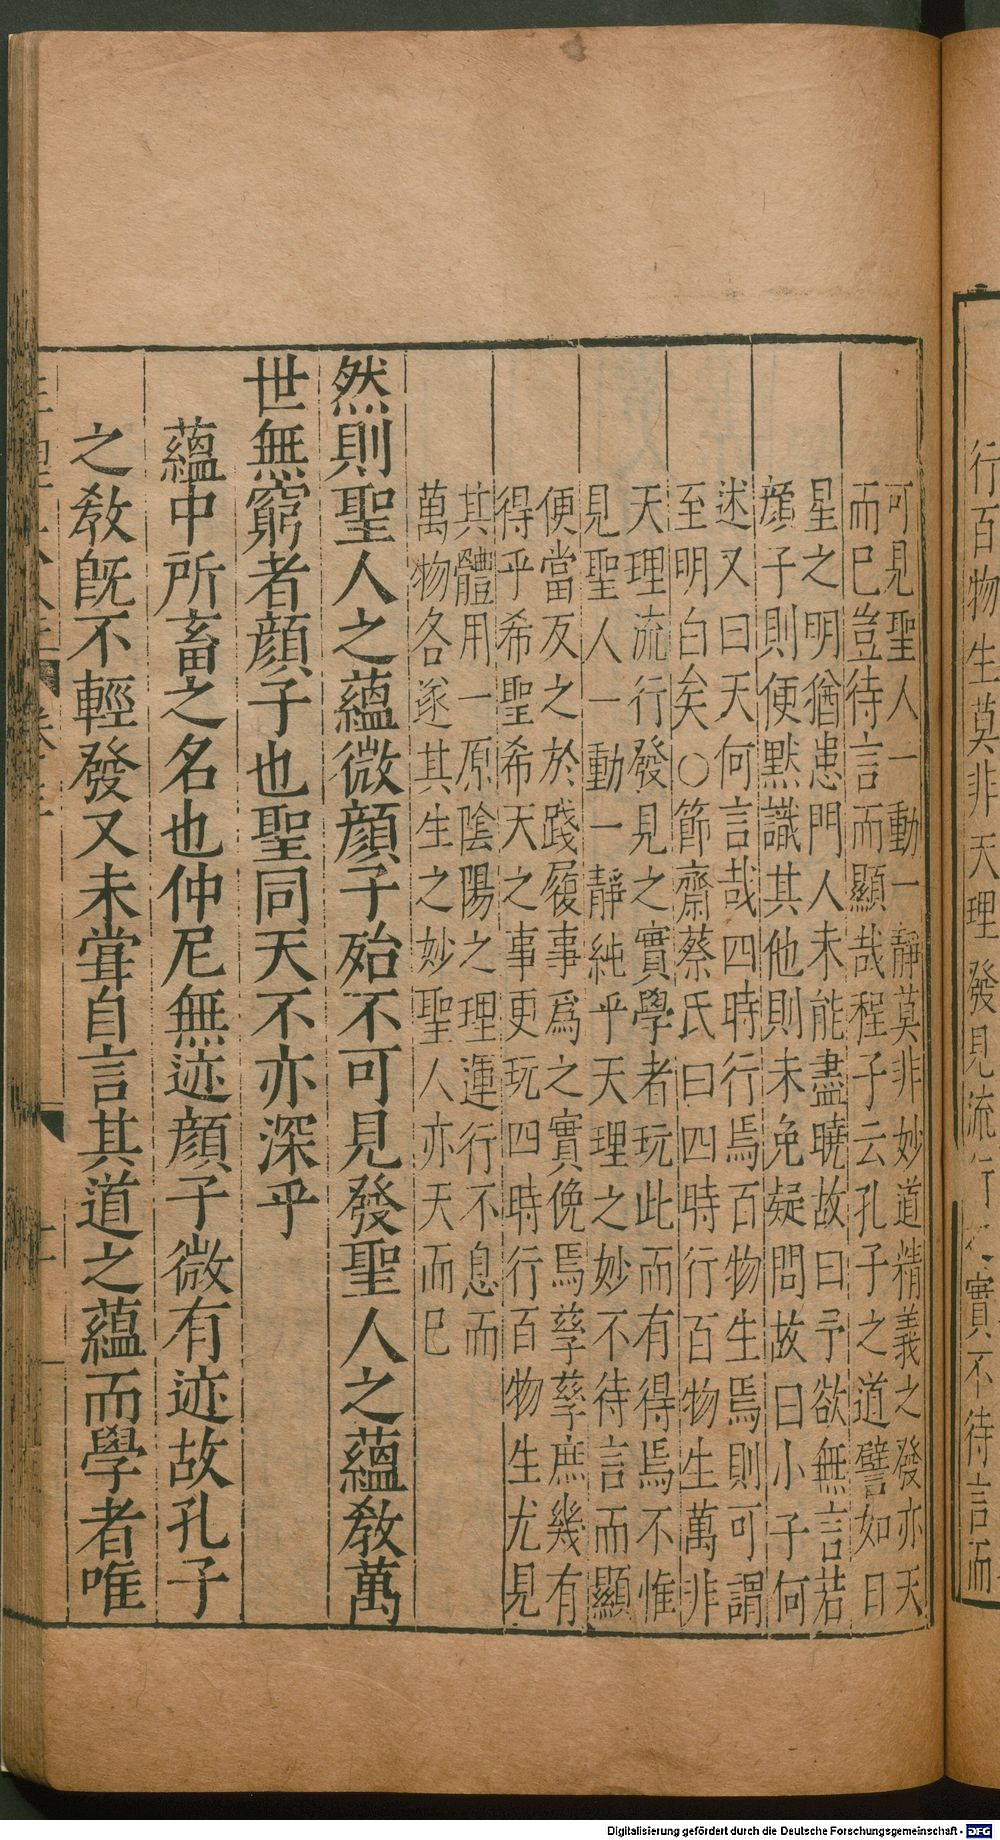 行百物生莫非天理發見流行之實不待言而
可見聖人一動一靜莫非妙道精義之發亦天
而已豈待言而顯哉程子云孔子之道譬如日
星之明猶患門人未能盡曉故曰予欲無言若
顔子則便黙識其他則未免疑問故曰小子何
述又曰天何言哉四時行焉百物生焉則可謂
至明白矣○節齋蔡氏曰四時行百物生萬非
天理流行發見之實學者玩此而有得焉不惟
見聖人一動一靜純乎天理之妙不待言而顯
便當反之於踐履事爲之實俛焉孳孳庶幾有
得乎希聖希天之事更玩四時行百物生尤見
其體用一原隂陽之理運行不息而
萬物各遂其生之妙聖人亦天而已
然則聖人之藴微顔子殆不可見發聖人之藴敎萬
世無窮者顔子也聖同天不亦深乎
藴中所畜之名也仲尼無迹顔子微有迹故孔子
之敎旣不輕發又未甞自言其道之藴而學者唯
Digitalisierung gefördert durch die Deutsche Forschungsgemeinschaft - DFG